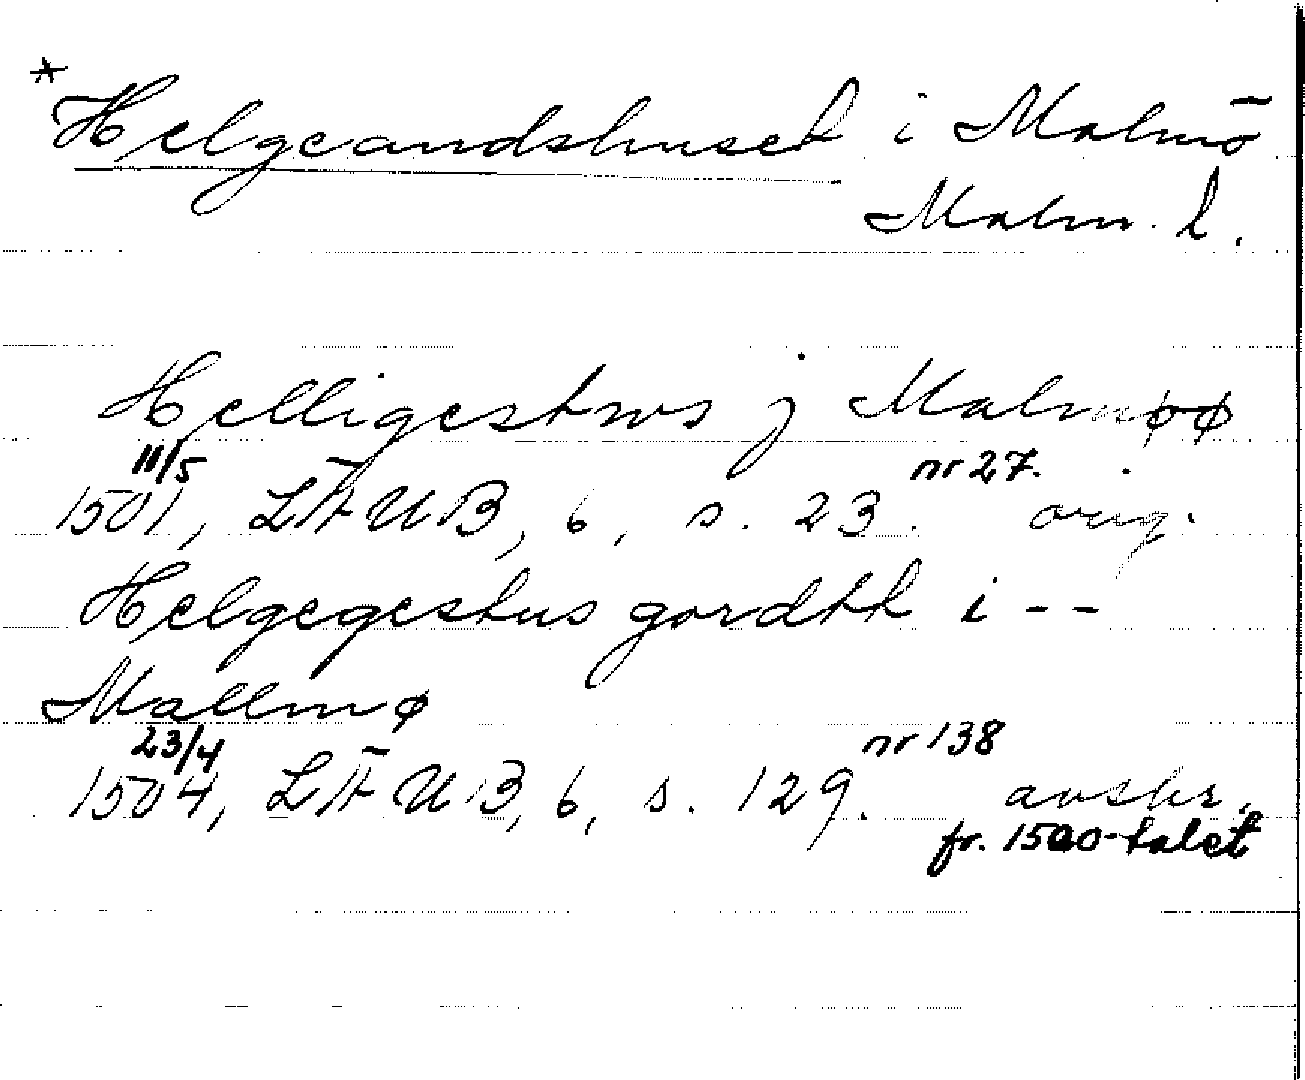 * Helgeandshuset i Malmö
Malm. l.
Helligestws j Malmøø
11/5 nr 27.
1501, LÄUB, 6, s. 23. orig.
Helgegestus gordth i --
Mallmø
23/4 nr 138
1504, LÄUB, 6, s. 129. avskr.
fr. 1500-talet